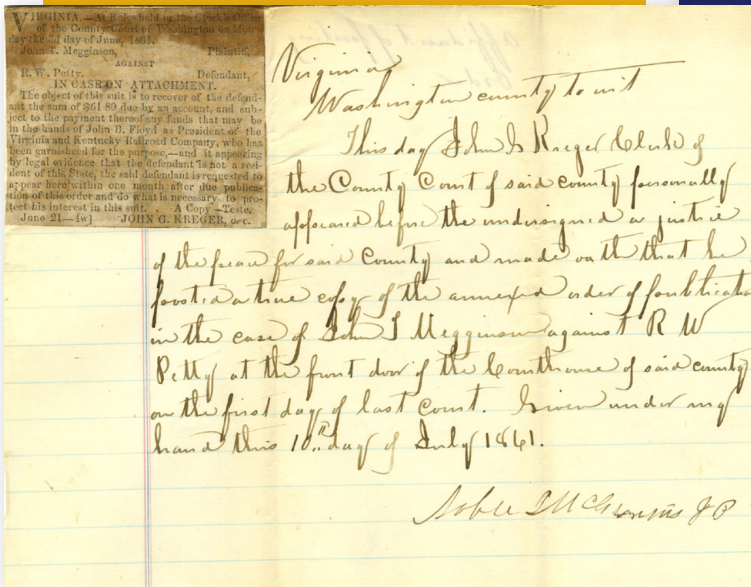 VIRGINIA.—At Rules held in the Clerk's Office
of the County Court of Washington on Mon-
day the 3d day of June, 1861.
John T. Megginson, Plaintiff,
AGAINST
R. W. Petty, Defendant,
IN CASE ON ATTACHMENT.
The object of this suit is to recover of the defend-
ant the sum of $61 89 due by an account, and sub-
ject to the payment thereof any funds that may be
in the hands of John B. Floyd as President of the
Virginia and Kentucky Railroad Company, who has
been garnisheed for the purpose,—and it appearing
by legal evidence that the defendant is not a resi-
dent of this State, the said defendant is requested to
appear here within one month after due publica-
tion of this order and do what is necessary to pro-
tect his interest in this suit. A Copy—Teste,
June 21—4w] JOHN G. KREGER, c.c.
Virginia
Washington county to wit
This day John G Kreger Clerk of
the County Court of said county personally
appeared before the undersigned a justice
of the peace for said County and made oath that he
posted a true copy of the annexed order of publication
in the case of John T Megginson against R W
Petty at the front door of the Courthouse of said county
on the first day of last Court. Given under my
hand this 10th day of July 1861.
Noble J P